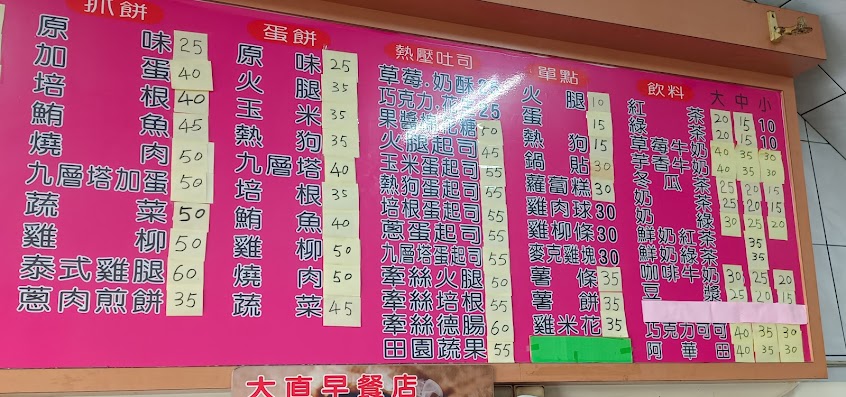 抓餅
原味 25
加蛋 40
培根 40
鮪魚 45
燒肉 50
九層塔加蛋 50
蔬菜 50
雞柳 50
泰式雞腿 60
蔥肉煎餅 35
蛋餅
原味 25
火腿 35
玉米 35
熱狗 35
九層塔 40
培根 35
鮪魚 40
雞柳 50
燒肉 50
蔬菜 45
熱壓吐司
草莓.奶酥
巧克力.花 25
果醬 糖 50
火腿起司 45
玉米蛋起司 55
熱狗蛋起司 55
培根蛋起司 55
蔥蛋起司 55
九層塔蛋起司 55
牽絲火腿 50
牽絲培根 55
牽絲德腸 60
田園蔬果 55
單點
火腿 10
蛋 15
熱狗 15
鍋貼 30
蘿蔔糕 30
雞肉球 30
雞柳條 30
麥克雞塊 30
薯條 35
薯餅 35
雞米花 35
飲料 大 中 小
紅茶 20 15 10
綠茶 20 15 10
草莓牛奶 40 35 30
芋香牛奶 40 35 30
冬瓜茶 25 20 15
奶茶 25 20 15
奶綠 30 25 20
鮮奶紅茶 35
鮮奶綠茶 35
咖啡牛奶 30 25 20
豆漿 25 20 15
巧克力可可 40 35 30
阿華田 40 35 30
大直早餐店